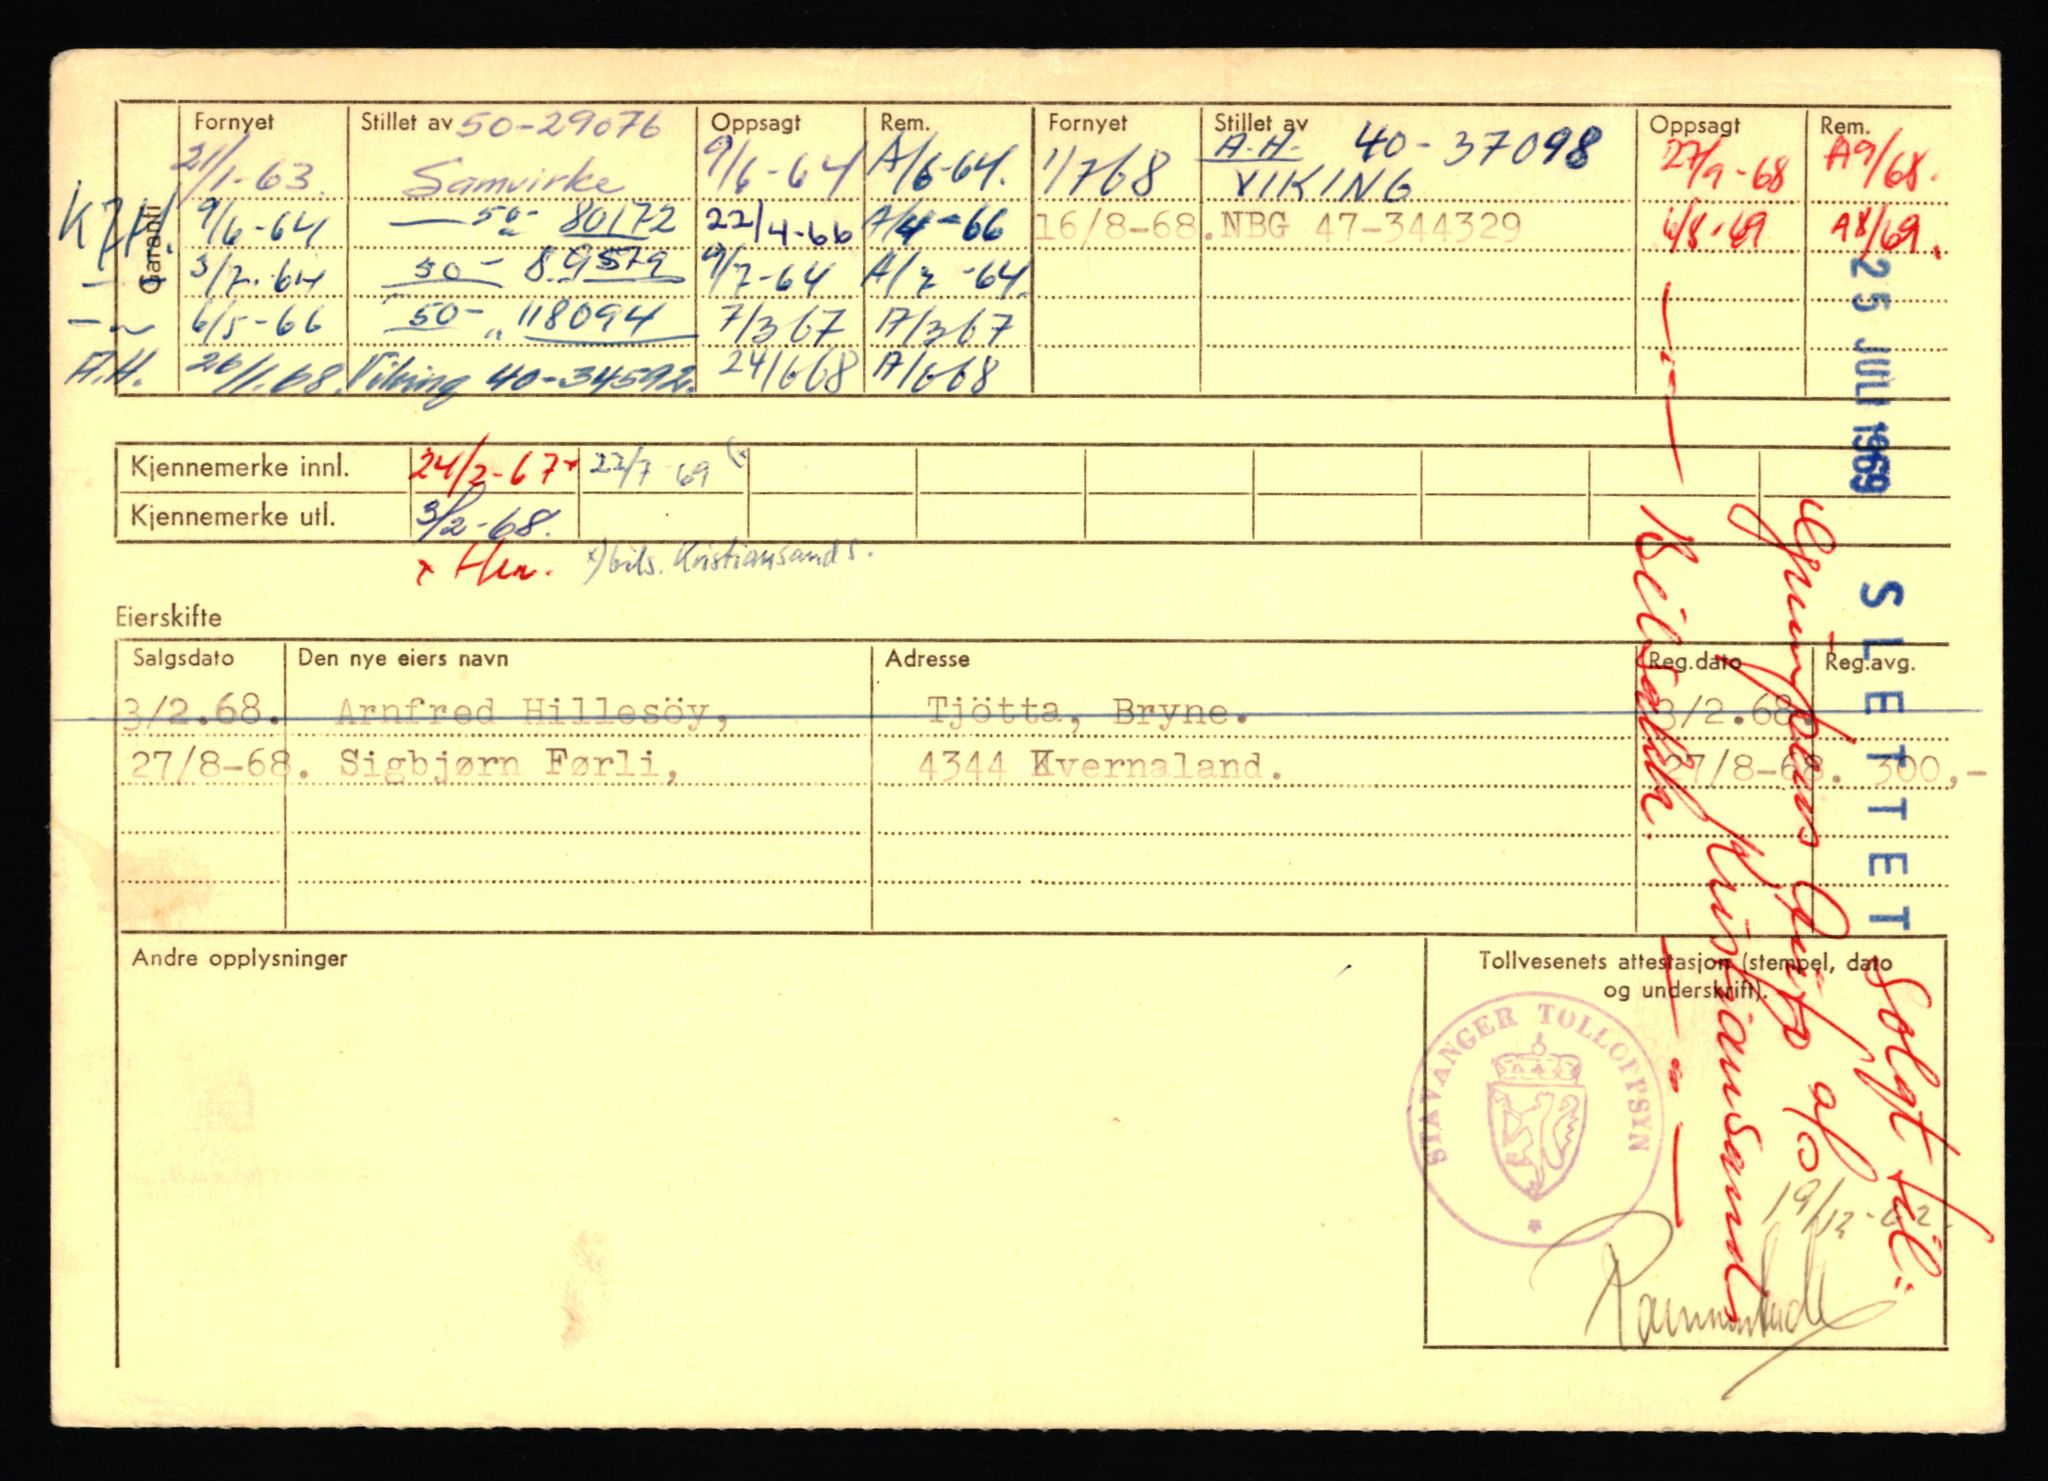 Fornyet Stillet av 50-29076 Oppsagt Rem. Fornyet Stillet av A.H. 40-37098 Oppsagt Rem.
21/1-63. Samvirke 9/6-64 A/6-64. 1/768 VIKING 27/9-68 A9/68.
Garanti
9/6-64 50- 80172 22/4-66 A/4-66 16/8-68. NBG 47-344329 6/8-69 A8/69.
3/7-64 50- 89579 9/7-64 A/7-64.
6/5-66 50- 118094 7/367 A/367
A.H. 26/1.68. Viking 40-34592. 24/668 A/668
Kjennemerke innl. 24/2-67x 22/7 69 (x
Kjennemerke utl. 3/2-68.
x) bils. Kristiansand S.
Eierskifte
Salgsdato Den nye eiers navn Adresse Reg.dato Reg.avg.
3/2.68. Arnfred Hillesöy, Tjötta, Bryne. 3/2.68.
27/8-68. Sigbjørn Førli, 4344 Kvernaland. 27/8-68. 300,-
Andre opplysninger
Tollvesenets attestasjon (stempel, dato
og underskrift).
STAVANGER TOLLOPPSYN
19/12-62.
25 JULI 1969 SLETTET
Solgt til:
Auto
Kristiansand S
Bilsakk.